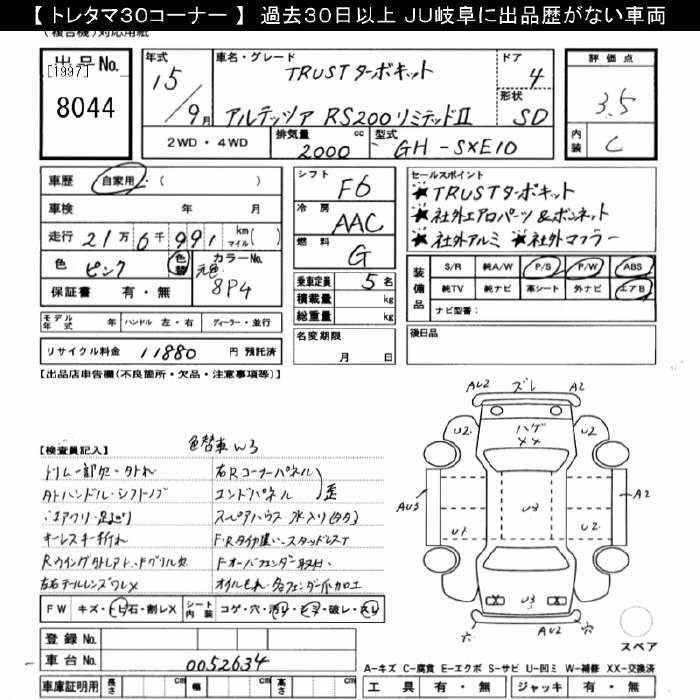 【 トレタマ30コーナー 】 過去30日以上 JU岐阜に出品歴がない車両
(複合機)対応用紙
出品No.
[1997]
8044
年式
15/9月
車名・グレード
TRUSTターボキット
アルテッツァ RS200リミテッドII
ドア
4
形状
SD
評価点
3.5
内装
C
2WD・4WD
排気量
2000
cc
型式
GH-SXE10
車歴 自家用・( )
車検 年 月
走行 21万6千991 km マイル( )
色 ピンク 色替 カラーNo. 元色 8P4
保証書 有・無
シフト F6
冷房 AAC
燃料 G
乗車定員 5名
積載量 kg
総重量 kg
名変期限
月 日
セールスポイント
★TRUSTターボキット
★社外エアロパーツ&ボンネット
★社外アルミ ★社外マフラー
装備品
S/R 純A/W P/S P/W ABS
純TV 純ナビ 革シート 外ナビ エアB
ナビ型番:
後日品
モデル年式 年 ハンドル 左・右 ディーラー・並行
リサイクル料金 11880 円 預託済
【出品店申告欄(不良箇所・欠品・注意事項等)】
【検査員記入】
色替車W3
トリム一部欠・タトれ
右Rコーナーパネル
エンドパネル
歪
キーレスキー折れ
左右テールレンズワレX
FW キズ・トビ石・割レX シート内装 コゲ・穴・汚レ・ヒヌ・破レ・スレ
登録No.
車台No. 0052634
車庫証明用 長さ cm 幅 cm 高さ cm
AU2 ズレ A2
U2 ハゲ XX U2
AU3 U3 A2
U1 U2
X U3 X
穴 AU2 穴
スペア
A-キズ C-腐食 E-エクボ S-サビ U-凹ミ W-補修 XX-交換済
工具 有・無 ジャッキ 有・無